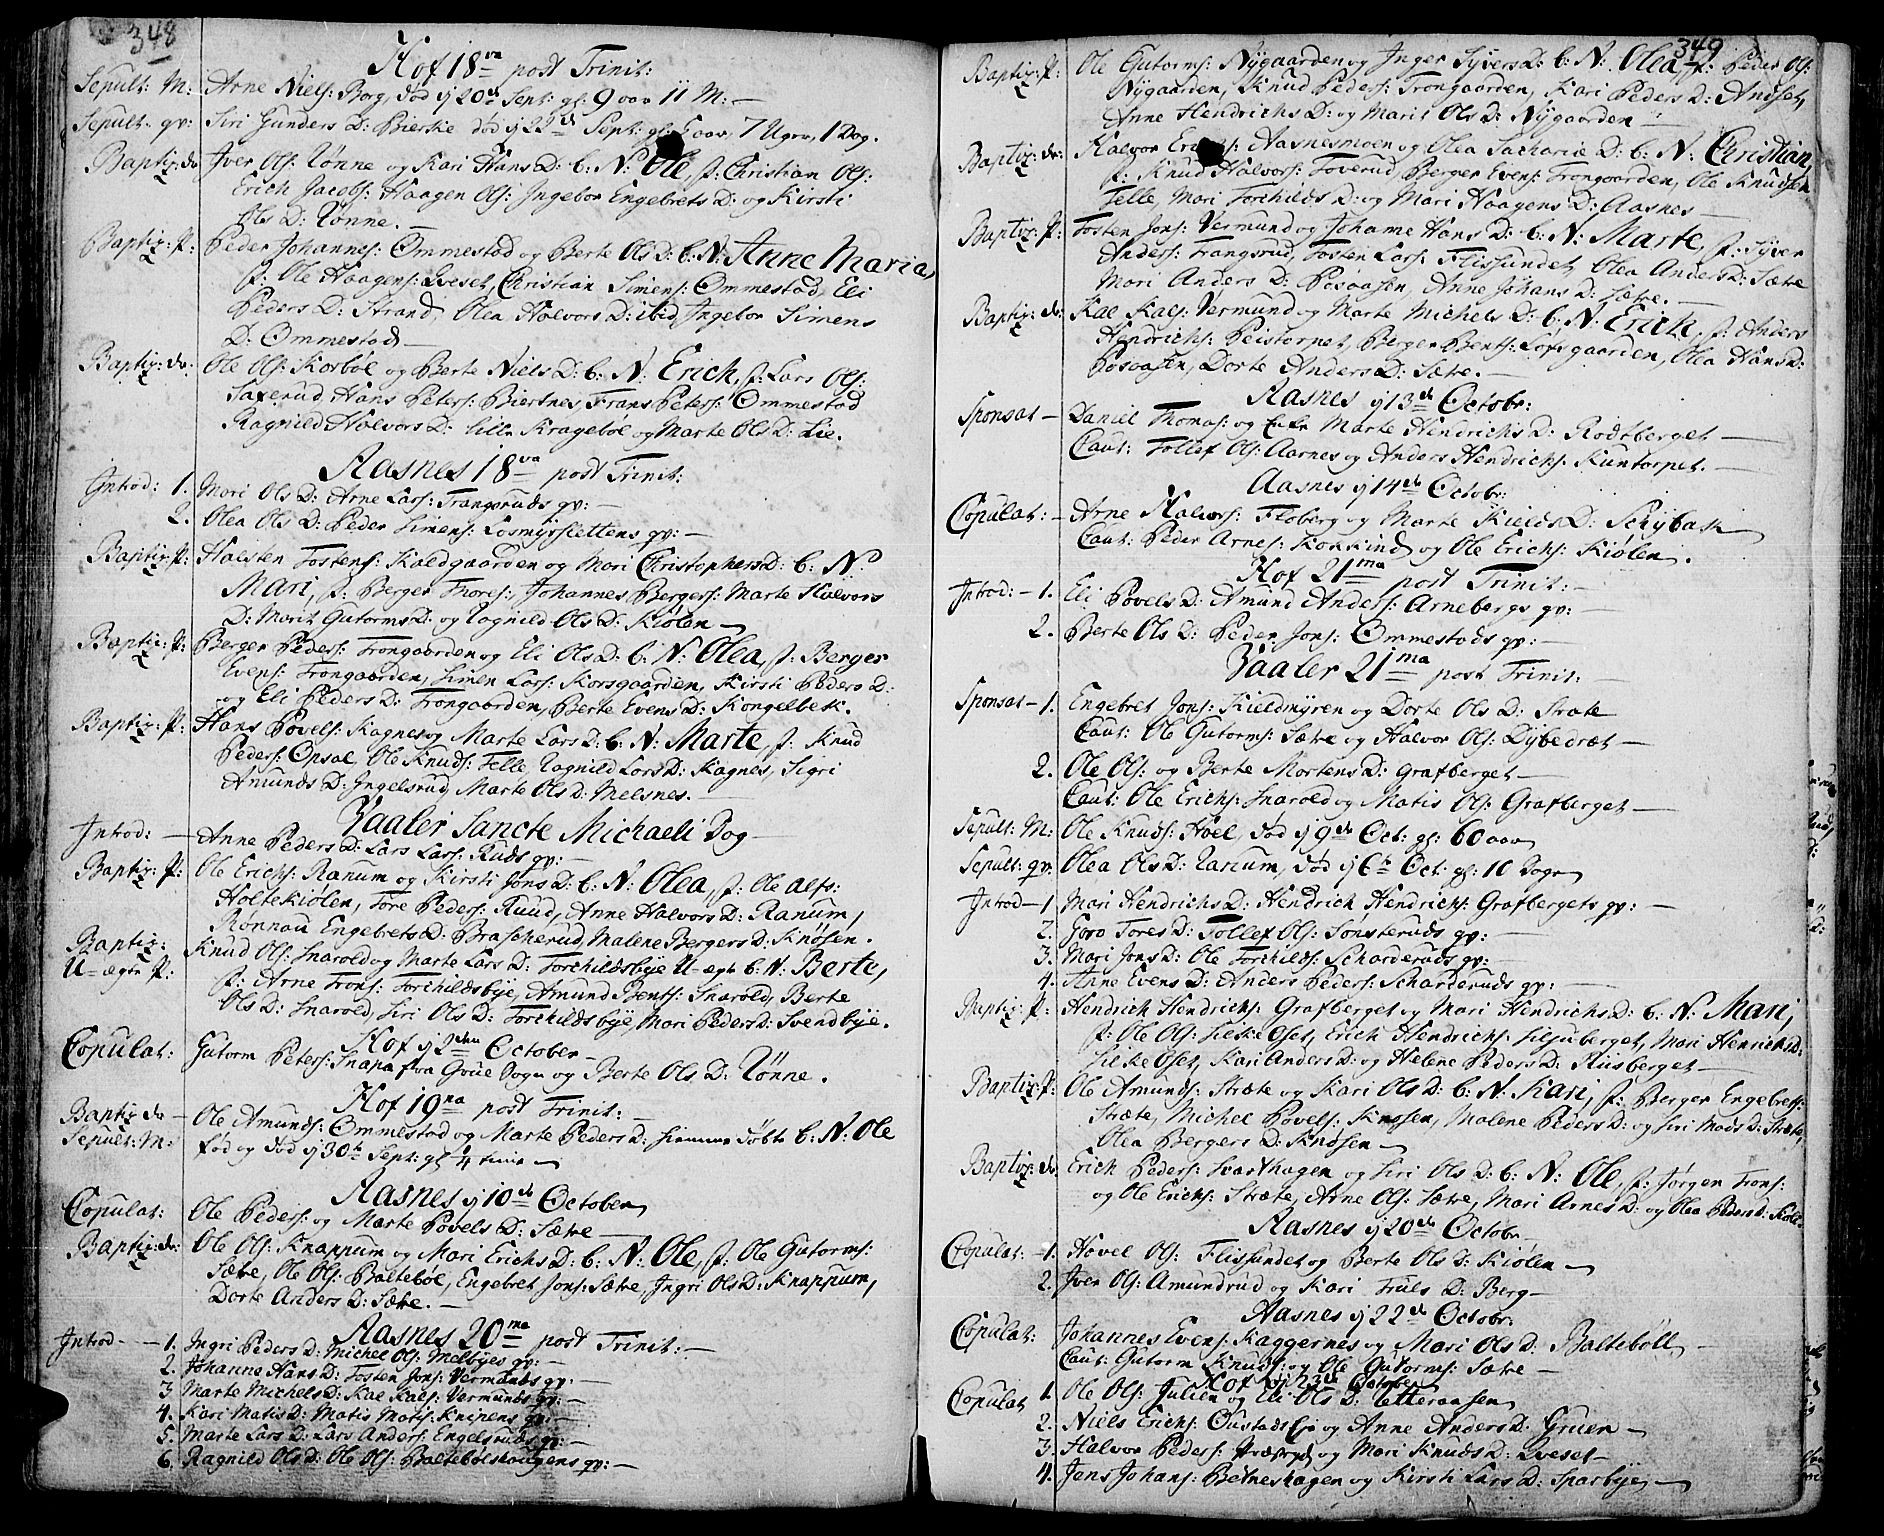 348
Hof 18va post Trinit:
Sepult: M: Arne Niels: Borg, død 20de Sept: gl: 9 aar 11 M: —
Sepult: qv: Siri Gunders D: Bierke død 22de Sept: gl: aar, 7 Uger, 1 Dag.
Baptiz: do Iver Ols: Tønne og Kari Hans D: b: N: Ole, f: Christian Ols:
Erich Jacobs: Haagen Ols: Ingebor Engebrets D: og Kirsti
Ols D: Tønne. —
Baptiz: P: Peder Johannes: Ommestad og Berte Ols D: b: N: Anne Maria,
f: Ole Haagens: Qveset, Christian Simens: Ommestad, Eli
Peders D: Strand, Olea Halvors D: ibid, Ingebor Simens
D: Ommestad —
Baptiz: do: Ole Ols: Korsbøl og Berte Niels D: b: N: Erich, f: Lars Ols:
Saxerud, Hans Peters: Biertnes, Frans Peters: Ommestad
Ragnild Halvors D: lille Kragebøl og Marte Ols D: Lie.
Aasnes 18va post Trinit:
Introd: 1. Mari Ols D: Arne Lars: Trangsruds qv: —
2. Olea Ols D: Peder Simens: Losmyrslettens qv: —
Baptiz: P: Halsten Tostens: Kaldgaarden og Mari Christophers D: b: N:
Mari, f: Berger Thores: Johannes Bergers: Marte Halvors
D: Marit Gutorms D: og Ragnild Ols D: Kiølen —
Baptiz: P: Berger Peders: Trongaarden og Eli Ols D: b: N: Olea, f: Berger
Evens: Trongaarden, Simen Lars: Korsgaarden, Kirsti Peders D:
og Eli Peders D: Trongaarden, Berte Evens D: Kongelbek.
Baptiz: P: Hans Povels: Kagnes og Marte Lars D: b: N: Marte, f: Knud
Peders: Opsal, Ole Knuds: Telle, Ragnild Lars D: Kagnes, Sigri
Amunds D: Ingelsrud, Marte Ols D: Melsnes. —
Vaaler Sancte Michaeli Dag —
Introd: — Anne Peders D: Lars Lars: Ruds qv: —
Baptiz: P: Ole Erichs: Ranum og Kirsti Jons D: b: N: Olea, f: Ole Alfs:
Holtekiølen, Tore Peders: Ruud, Anne Halvors D: Ranum,
Rønnau Engebrets D: Brascherud, Malene Bergers D: Knøsen.
Baptiz: Knud Ols: Snarold og Marte Lars D: Torchildsbye U-ægte b: N: Berte,
U-ægte P: f: Arne Trons: Torchildsbye, Amund Bents: Snarold, Berte
Ols D: Snarold, Siri Ols D: Torchildsbye, Mari Peders D: Svendbye.
Hof 2den October —
Copulat: Gutorm Peters: Snapa fra Grue Sogn og Berte Ols D: Tønne.
Hof 19na post Trinit: —
Baptiz do — Ole Amunds: Ommestad og Marte Peders D: hiemme døbte b: N: Ole
Sepult: M: fød og død 30te Sept: gl 4 timer
Aasnes 10de October
Copulat: Ole Peders: og Marte Povels D: Sætre —
Baptiz: do: Ole Ols: Knappum og Mari Erichs D: b: N: Ole, f: Ole Gutorms:
Sætre, Ole Ols: Baltebøl, Engebret Jons: Sætre, Ingri Ols D: Knappum,
Dorte Anders D: Sætre. —
Aasnes 20ma post Trinit: —
Introd — 1. Ingri Peders D: Michel Ols: Melbyes qv: —
2. Johanne Hans D: Tosten Jons: Vermunds qv: —
3 Marte Michels D: Kal Kals: Vermunds qv: —
4. Kari Matis D: Matis Matis: Knipens qv: —
5. Marte Lars D: Lars Anders: Engelsruds qv: —
6. Ragnild Ols D: Ole Ols: Baltebølshaugens qv: —
349
Baptiz: P: Ole Gutorms: Nygaarden og Inger Syvers D: b: N: Olea f: Peder Ols:
Nygaarden, Knud Peders: Trongaarden, Kari Peders D: Andset,
Anne Hendrichs D: og Marit Ols D: Nygaarden —
Baptiz: do: Halvor Aasnesmoen og Olea Zacharia D: b: N: Christian,
f: Knud Halvors: Toverud, Berger Evens: Trongaarden, Ole Knudsen
Telle, Mari Torchilds D: og Mari Haagens D: Aasnes —
Baptiz: P: Tosten Jons: Vermund og Johanne Hans D: b: N: Marte, f: Syver
Anders: Trangsrud, Tosten Lars: Flissundet, Olea Anders D: Sætre
Mari Anders D: Posaasen, Anne Johans D: Sætre. —
Baptiz: do: Kal Kals: Vermund og Marte Michels D: b: N: Erich, f: Anders
Hendrichs: Peistorpet, Berger Bents: Lofsgaarden, Olea Hans D:
Posaasen, Dorte Anders D: Sætre. —
Aasnes 13de Octobr:
Sponsat — Daniel Thomas: og Enke Marte Hendrichs D: Rodtberget —
Caut: Tollef Ols: Aarnes og Anders Hendrichs: Kuntorpet. —
Aasnes 14de Octobr:
Copulat: — Arne Halvors: Floberg og Marte Kields D: Schybak
Caut: Peder Arnes: Korkind og Ole Erichs: Kiølen.
Hof 21ma post Trinit: —
Introd: — 1. Eli Povels D: Amund Anders: Arnebergs qv: —
2. Berte Ols D: Peder Jons: Ommestads qv: —
Vaaler 21ma post Trinit: —
Sponsat — 1. Engebret Jons: Kieldmyren og Dorte Ols D: Stræte
Caut: Ole Gutorms: Sætre og Halvor Ols: Dybedræt —
2. Ole Ols: og Berte Mortens D: Grafberget —
Caut: Ole Erichs: Snarold og Matis Ols: Grafberget —
Sepult: M: Ole Knuds: Hoel, død 9de Oct: gl: 60 aar
Sepult: qv: Olea Ols D: Rarium, død 6te Oct: gl: 10 Dage
Introd — 1 Mari Hendrichs D: Hendrich Hendrichs: Grafbergets qv: —
2. Goro Tores D: Tollef Ols: Sønsteruds qv: —
3. Mari Jons D: Ole Torchilds: Scharderuds qv: —
4. Anne Evens D: Anders Peders: Scharderuds qv: —
Baptiz: P: Hendrich Hendrichs: Grafberget og Mari Hendrichs D: b: N: Mari,
f: Ole Ols: Silkeoset, Erich Hendrichs: Siljuberget, Mari Henrichs D:
Silkeoset, Kari Anders D: og Helene Peders D: Riisberget —
Baptiz: P: Ole Amunds: Stræte og Kari Ols D: b: N: Kari, f: Berger Engebrets:
Stræte, Michel Povels: Knøsen, Malene Peders D: og Siri Mads D: Stræte,
Olea Bergers D: Knøsen —
Baptiz: do: Erich Peders: Svarthagen og Siri Ols D: b: N: Ole, f: Jørgen Trons:
og Ole Erichs: Stræte, Arne Ols: Sætre, Mari Arnes D: og Olea Peders D:
Aasnes 20de Octobr
Copulat: — 1. Hovel Ols: Flissundet og Berte Ols D: Kiølen —
2. Iver Ols: Amundrud og Kari Truls D: Berg —
Aasnes 22de Octobr:
Copulat: Johannes Evens: Kaggernes og Mari Ols D: Baltebøll —
Caut: Gutorm Knuds: og Ole Gutorms: Sætre —
Hof 23de October
Copulat 1. Ole Ols: Julien og Eli Ols D:
2. Niels Erichs: og Anne Anders D: Gruen —
3. Halvor Peders: og Mari Knuds D: Qveset —
4. Jens Johans: Betneshagen og Kirsti Lars D: Sparbye —